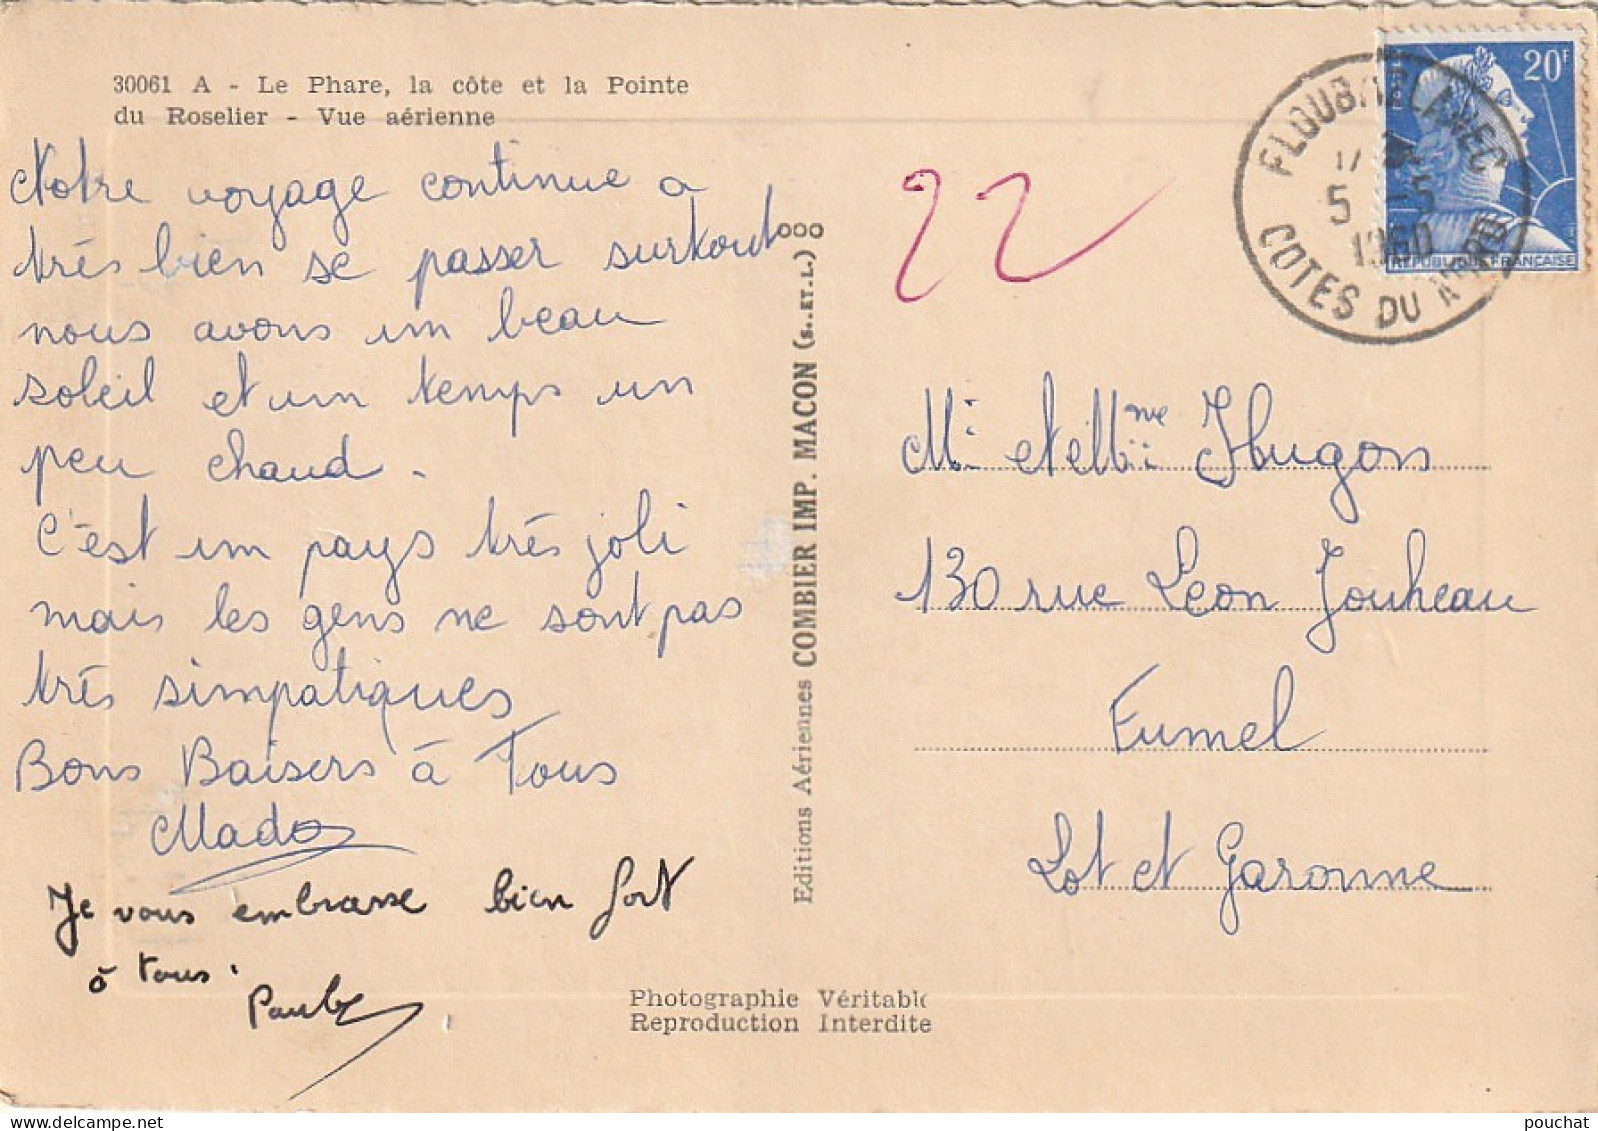 30061 A - Le Phare, la côte et la Pointe
du Roselier - Vue aérienne
Notre voyage continue a
très bien se passer surtout
nous avons un beau
soleil et un temps un
peu chaud.
C'est un pays très joli
mais les gens ne sont pas
très simpatiques
Bons Baisers à Tous
Mado
Je vous embrasse bien fort
à tous.
Editions Aériennes COMBIER IMP. MACON (S..ET.L.) ooo
22
20F
REPUBLIQUE FRANÇAISE
5 -5
1960
COTES DU NORD
Mr et Mme Hugon
130 rue Léon Jouheau
Fumel
Lot et Garonne
Photographie Véritable
Reproduction Interdite
pouchat